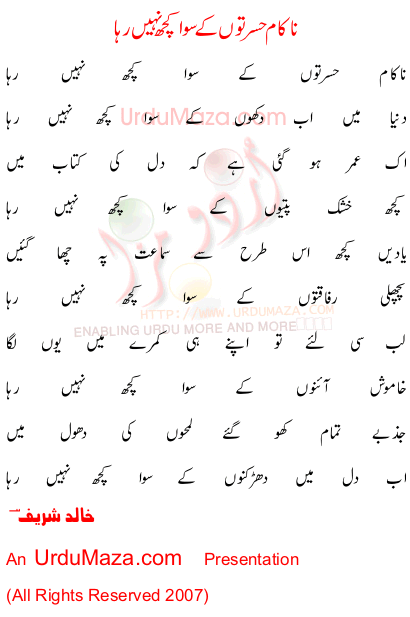 ناکام حسرتوں کے سوا کچھ نہیں رہا
ناکام حسرتوں کے سوا کچھ نہیں رہا
دنیا میں اب دکھوں کے سوا کچھ نہیں رہا
اک عمر ہو گئی ہے کہ دل کی کتاب میں
کچھ خشک پتیوں کے سوا کچھ نہیں رہا
یادیں کچھ اس طرح سے سماعت پہ چھا گئیں
پچھلی رفاقتوں کے سوا کچھ نہیں رہا
لب سی لئے تو اپنے ہی کمرے میں یوں لگا
خاموش آئنوں کے سوا کچھ نہیں رہا
جذبے تمام کھو گئے لمحوں کی دھول میں
اب دل میں دھڑکنوں کے سوا کچھ نہیں رہا
خالد شریف
An UrduMaza.com Presentation
(All Rights Reserved 2007)
UrduMaza.com
اردو مزا
HTTP://WWW.URDUMAZA.COM
ENABLING URDU MORE AND MORE